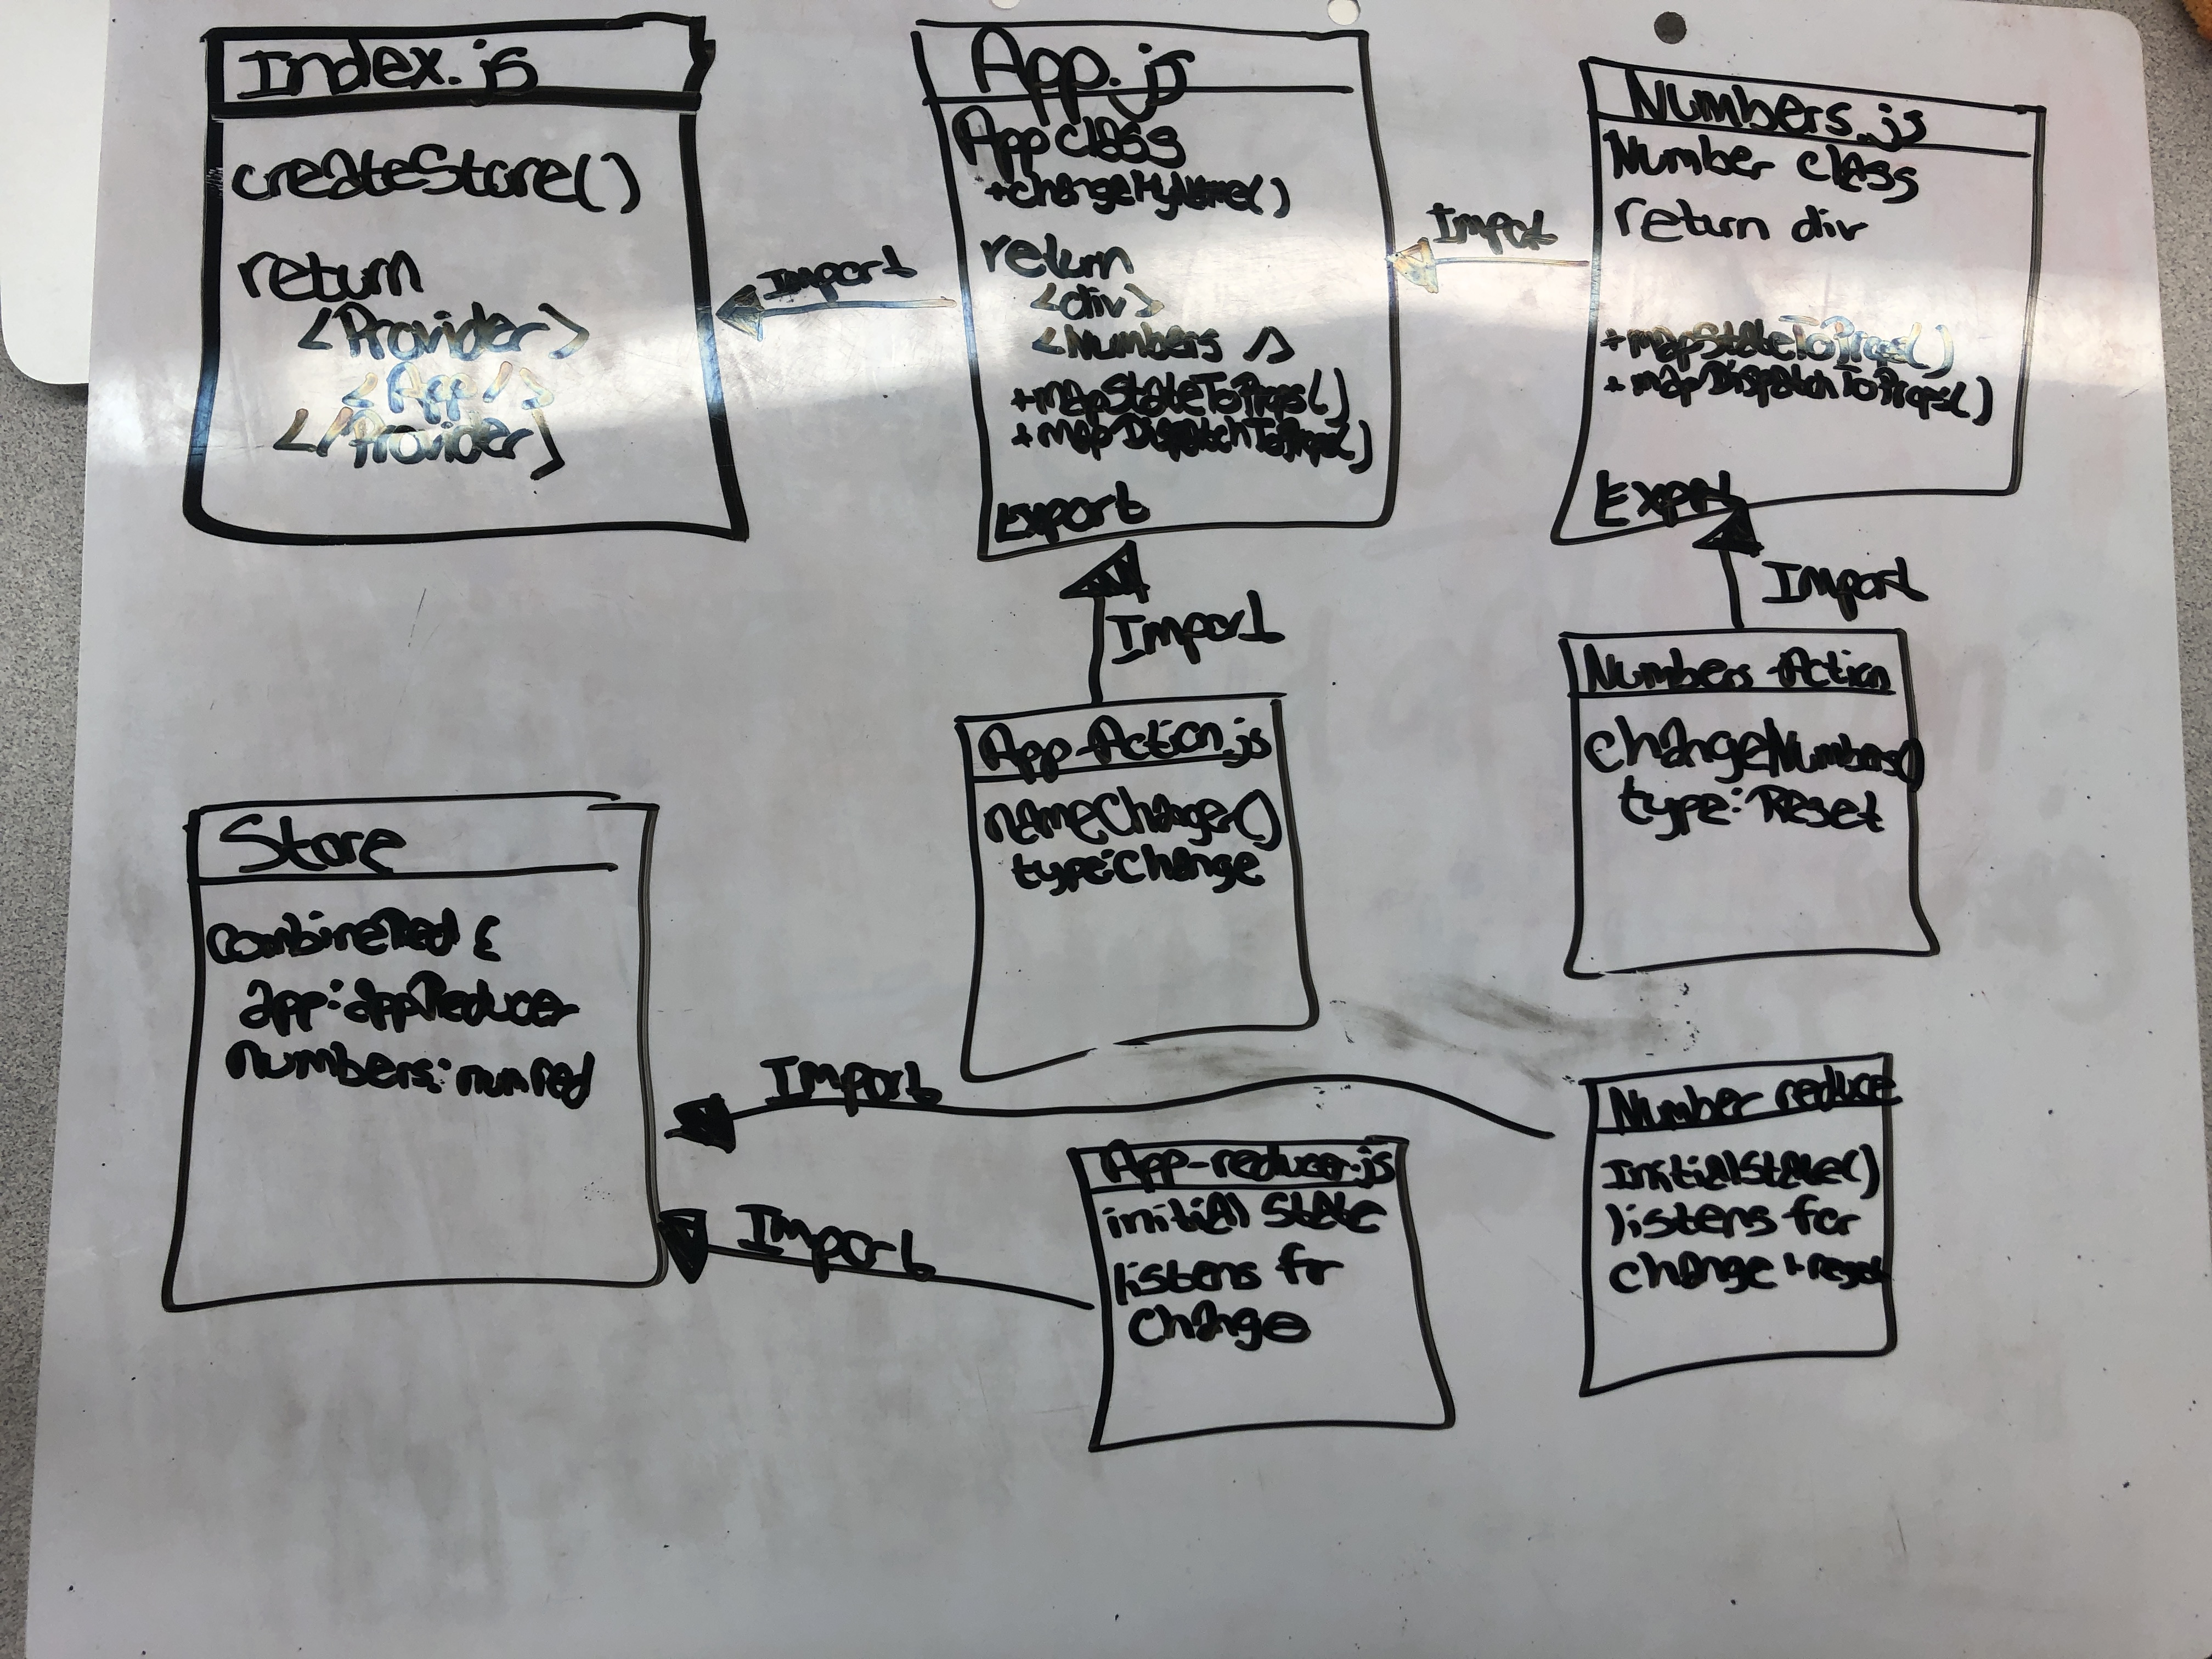 Index.js
createStore()
return
<Provider>
<App/>
</Provider>
Import
App.js
App class
+changeMyName()
return
<div>
<Numbers />
+mapStateToProps()
+mapDispatchToProps()
Export
Import
Numbers.js
Number class
return div
+mapStateToProps()
+mapDispatchToProps()
Export
Import
App-Action.js
nameChange()
type:change
Import
Numbers-Action
changeNumbers()
type:Reset
Store
CombineRed {
app:appReducer
numbers:numRed
Import
Import
App-reducer.js
initial state
listens for
change
Number-reduce
listens for